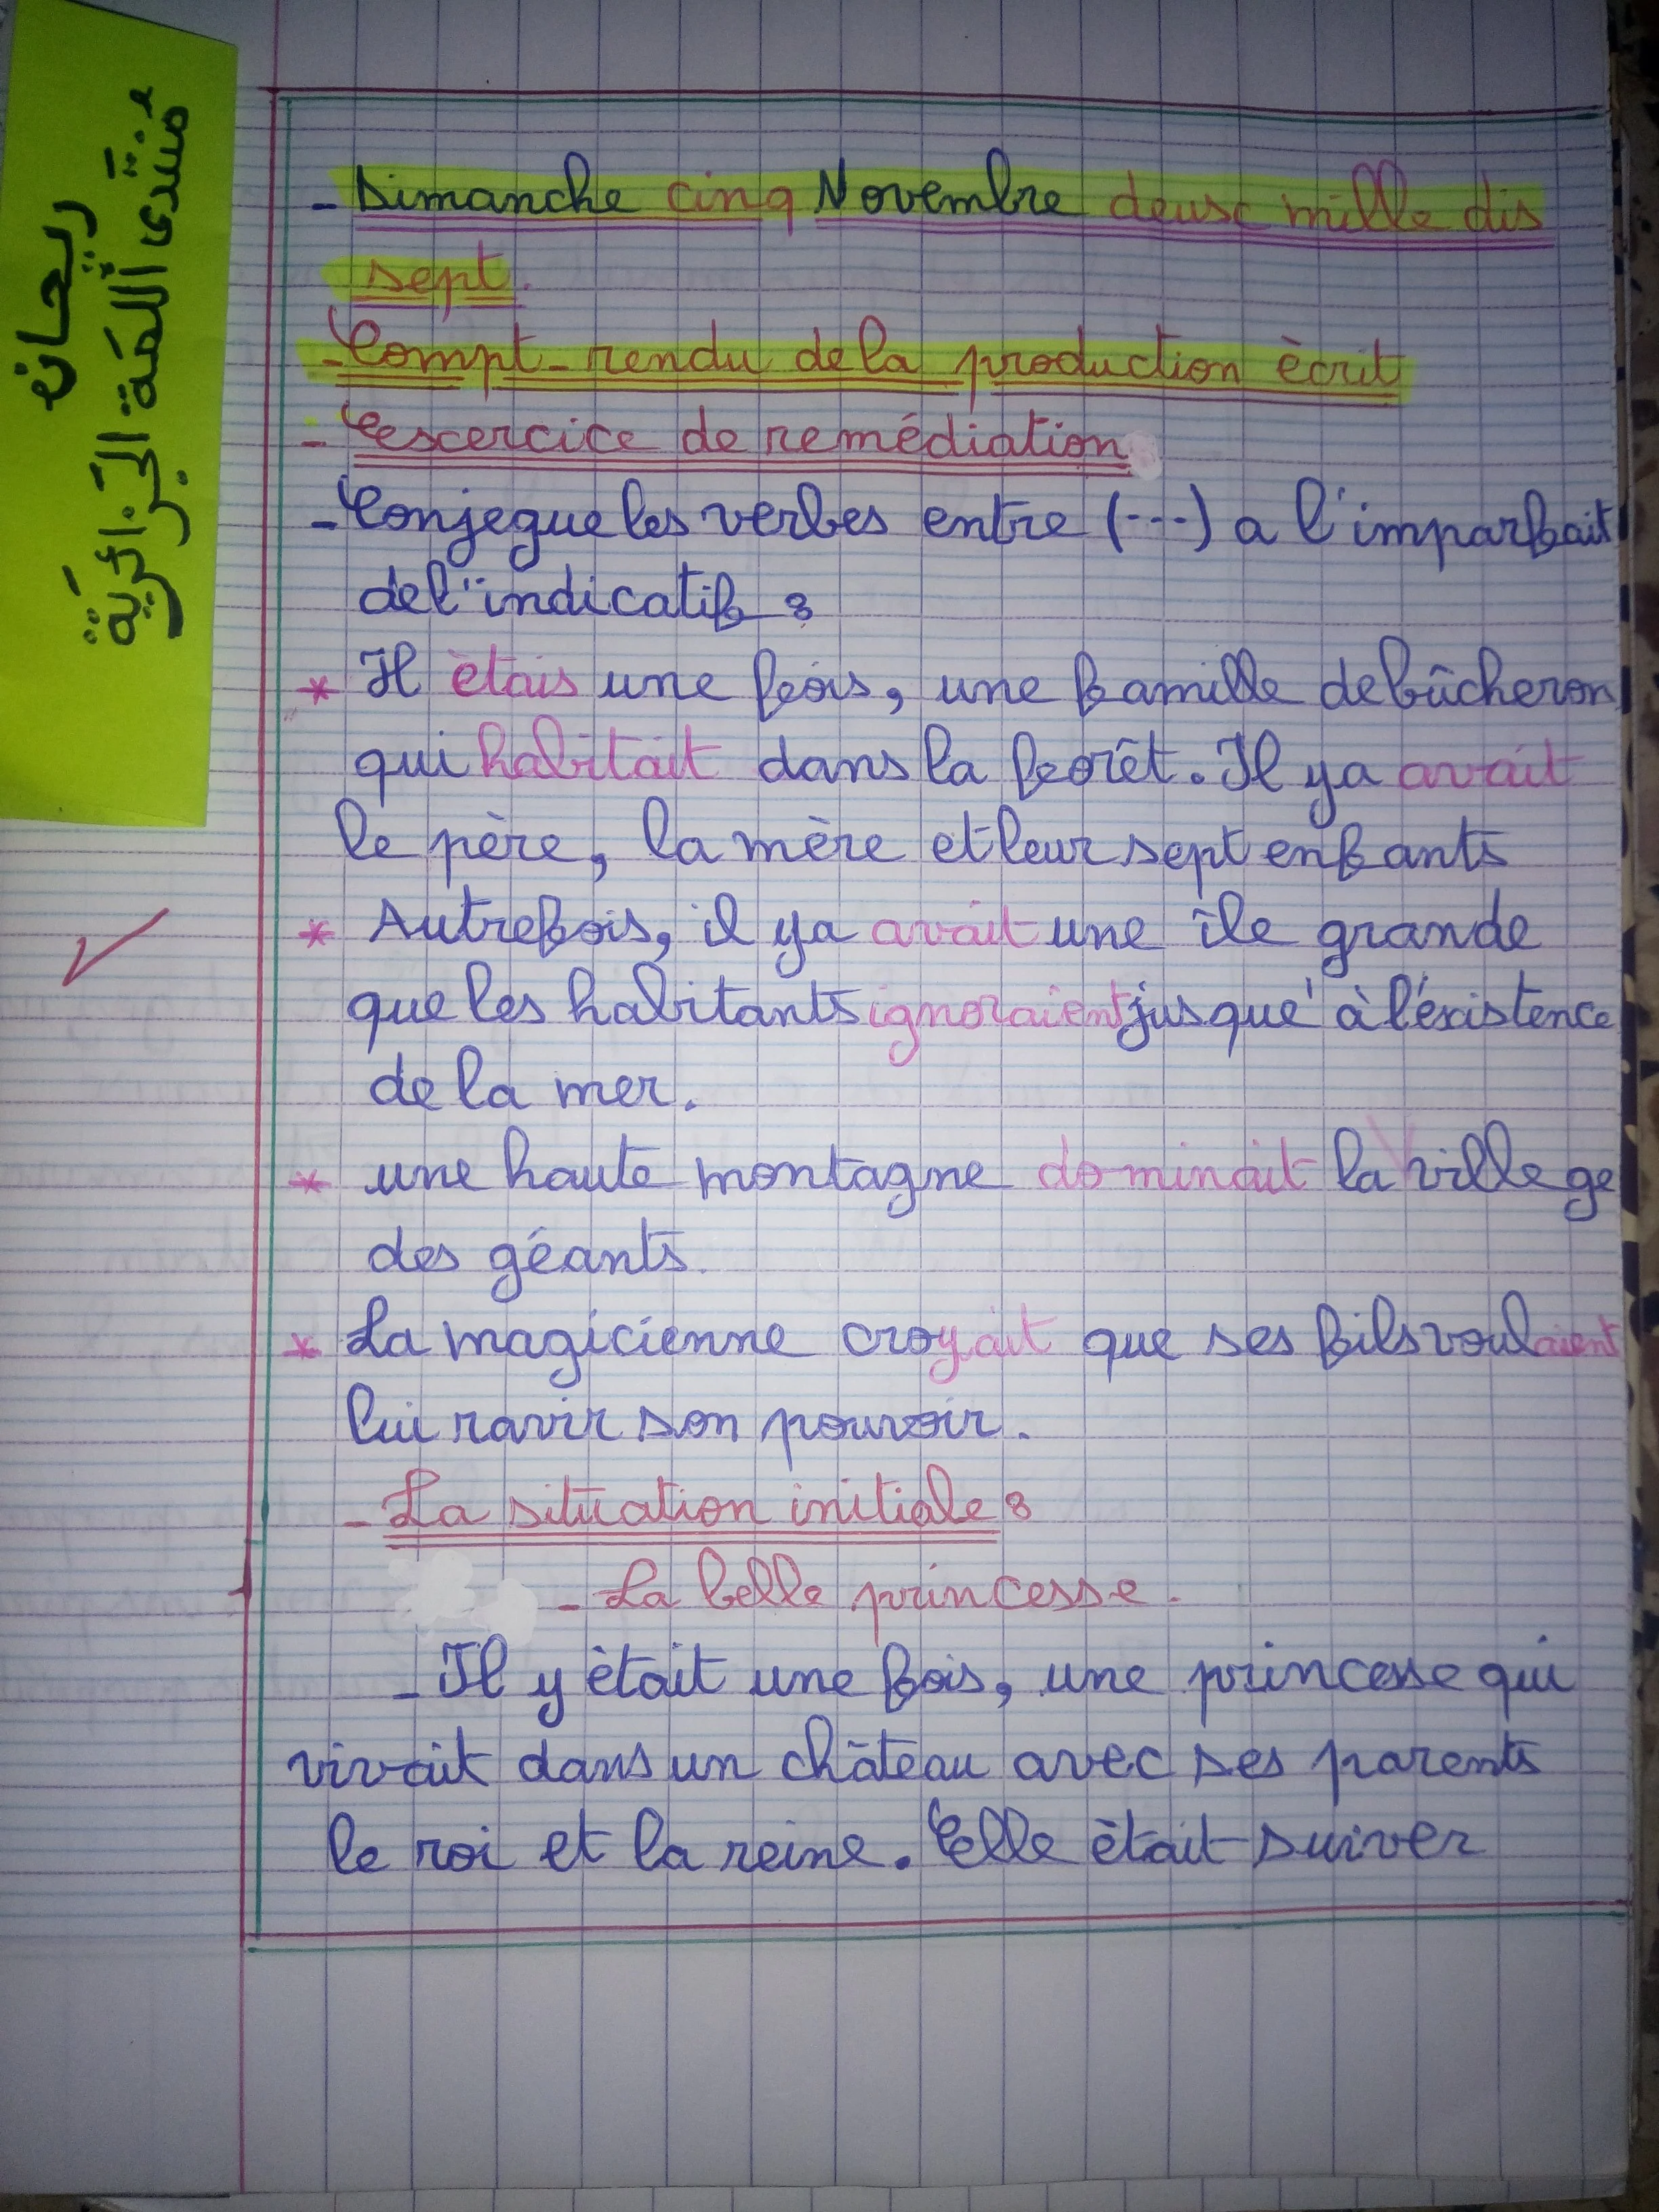 ريحانة
منتدى اللمة الجزائرية
- Dimanche cinq Novembre deuxc mille dis
sept.
- Compt-rendu de la production ècrit
- Eexcercice de remédiation
- Conjegue les verbes entre (---) a l'imparfait
de l'indicatif :
* Il ètais une fois, une famille de bûcheron
qui habitait dans la forêt. Il ya avait
le père, la mère et leur sept enfants
* Autrefois, il ya avait une île grande
que les habitants ignoraient jusque' à l'éxistence
de la mer.
* une haute montagne dominait la villege
des géants.
* La magicienne croyait que ses fils voulaient
lui ravir son pouvoir.
- La situation initiale :
- La belle princesse.
- Il y ètait une fois, une princesse qui
vivait dans un château avec ses parents
le roi et la reine. Elle ètait suiver